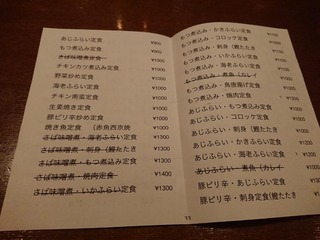 あじふらい定食 ¥900
もつ煮込み定食 ¥900
さば味噌煮定食 ¥1000
チキンカツ煮込み定食 ¥1000
野菜炒め定食 ¥1000
海老ふらい定食 ¥1000
チキン南蛮定食 ¥1000
生姜焼き定食 ¥1000
豚ピリ辛炒め定食 ¥1000
焼き魚定食 (赤魚西京焼 ¥1000
さば味噌煮・海老ふらい定食 ¥1300
さば味噌煮・刺身(鰹たたき ¥1300
さば味噌煮・もつ煮込み定食 ¥1300
さば味噌煮・焼肉定食 ¥1400
さば味噌煮・いかふらい定食 ¥1300
もつ煮込み・かきふらい定食
もつ煮込み・コロッケ定食
もつ煮込み・刺身(鰹たたき
もつ煮込み・いかふらい定食
もつ煮込み・海老ふらい定食
もつ煮込み・煮魚(カレイ
もつ煮込み・鳥唐揚げ定食
もつ煮込み・焼肉定食
あじふらい・もつ煮込み定食
あじふらい・コロッケ定食
あじふらい・刺身(鰹たたき
あじふらい・かきふらい定食
あじふらい・海老ふらい定食
あじふらい・煮魚(カレイ
豚ピリ辛・あじふらい定食
豚ピリ辛・刺身定食(鰹たたき
11